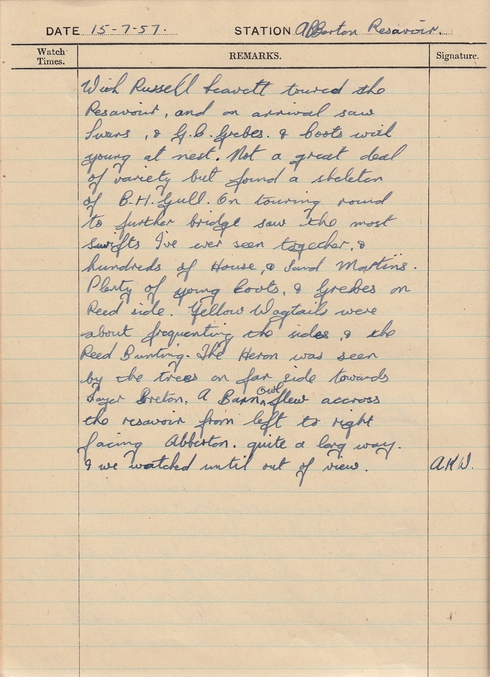 DATE 15-7-57. STATION Abberton Resavoir.
Watch Times. REMARKS. Signature.
With Russell Leavett toured the
Resavour, and on arrival saw
Swans, & G.C. Grebes. & Coots with
young at nest. Not a great deal
of variety but found a skeleton
of B.H. Gull. On touring round
to further bridge saw the most
swifts I've ever seen together, &
hundreds of House, & Sand Martins.
Plenty of young Coots, & Grebes on
Reed side. Yellow Wagtails were
about frequenting the sides, & the
Reed Bunting. The Heron was seen
by the trees on far side towards
Layer Breton. A Barn Owl flew accross
the resavoir from left to right
facing Abberton. quite a long way.
& we watched until out of view. A.H.W.